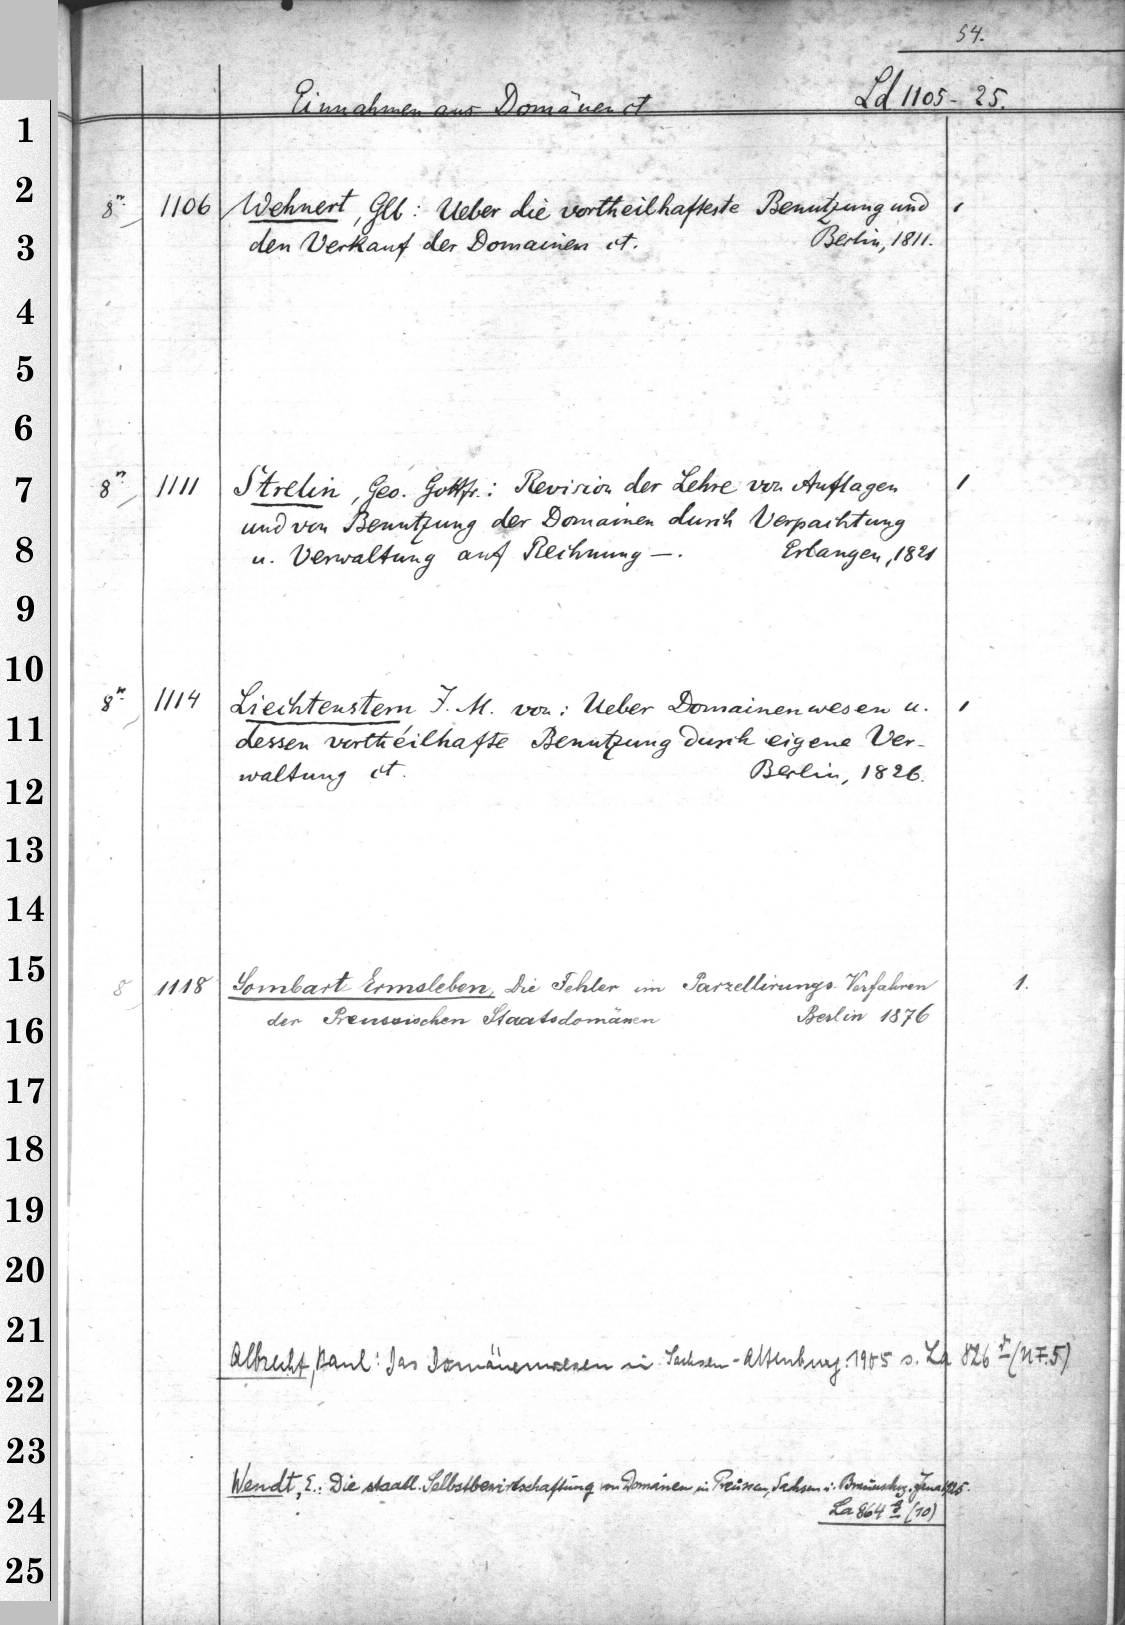 54.
Einnahmen aus Domänen ct Ld 1105-25.
1
2
8º 1106 Wehnert, Glb: Ueber die vortheilhafteste Benutzung und 1
3
den Verkauf der Domainen ct. Berlin, 1811.
4
5
6
7
8º 1111 Strelin, Geo. Gottfr.: Revision der Lehre von Auflagen 1
und von Benutzung der Domainen durch Verpachtung
8
u. Verwaltung auf Rechnung —. Erlangen, 1821
9
10
8º 1114 Liechtenstern J. M. von: Ueber Domainenwesen u. 1
11
dessen vortheilhafte Benutzung durch eigene Ver-
waltung ct. Berlin, 1826.
12
13
14
15
8 1118 Sombart Ermsleben, Die Fehler im Parzellirungs-Verfahren 1.
16
der Preussischen Staatsdomänen Berlin 1876
17
18
19
20
21
Albrecht, Paul: Das Domänenwesen in Sachsen-Altenburg. 1905 s. La 826 (N.F.5)
22
23
Wendt, E.: Die staatl. Selbstbewirtschaftung von Domänen in Preussen, Sachsen u. Braunschw. Jena 1925.
24
La 864 (10)
25